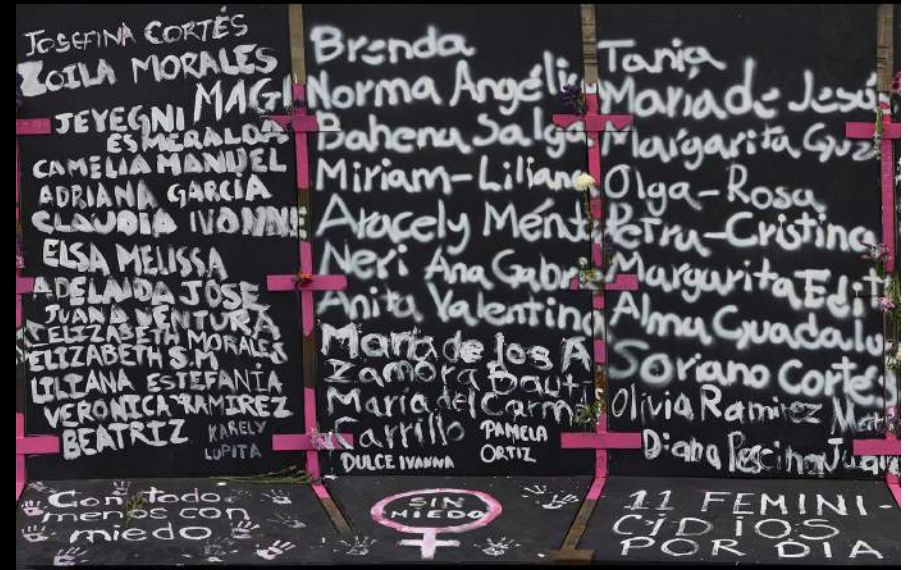 JOSEFINA CORTÉS
ZOILA MORALES
MAGI
JEYEGNI
ESMERALDA
CAMELIA MANUEL
ADRIANA GARCÍA
CLAUDIA IVONNE
ELSA MELISSA
ADELAIDA JOSE
JUANA VENTURA
ELIZABETH MORALES
ELIZABETH S.M
LILIANA ESTEFANÍA
VERONICA RAMIREZ
BEATRIZ
KARELY
LUPITA
Brenda
Norma Angélic
Bahena Salga
Miriam-Liliana
Aracely Mént
Neri Ana Gabri
Anita Valentina
María de los A
Zamora Bauti
María del Carm
Carrillo
PAMELA
ORTIZ
DULCE IVANNA
Tania
María de Jesús
Margarita Guz
Olga-Rosa
Petra-Cristina
Margarita Edit
Alma Guadalu
Soriano Cortés
Olivia Ramirez
Diana
Juan
Con todo
menos con
miedo
SIN
MIEDO
11 FEMINI-
CIDIOS
POR DIA